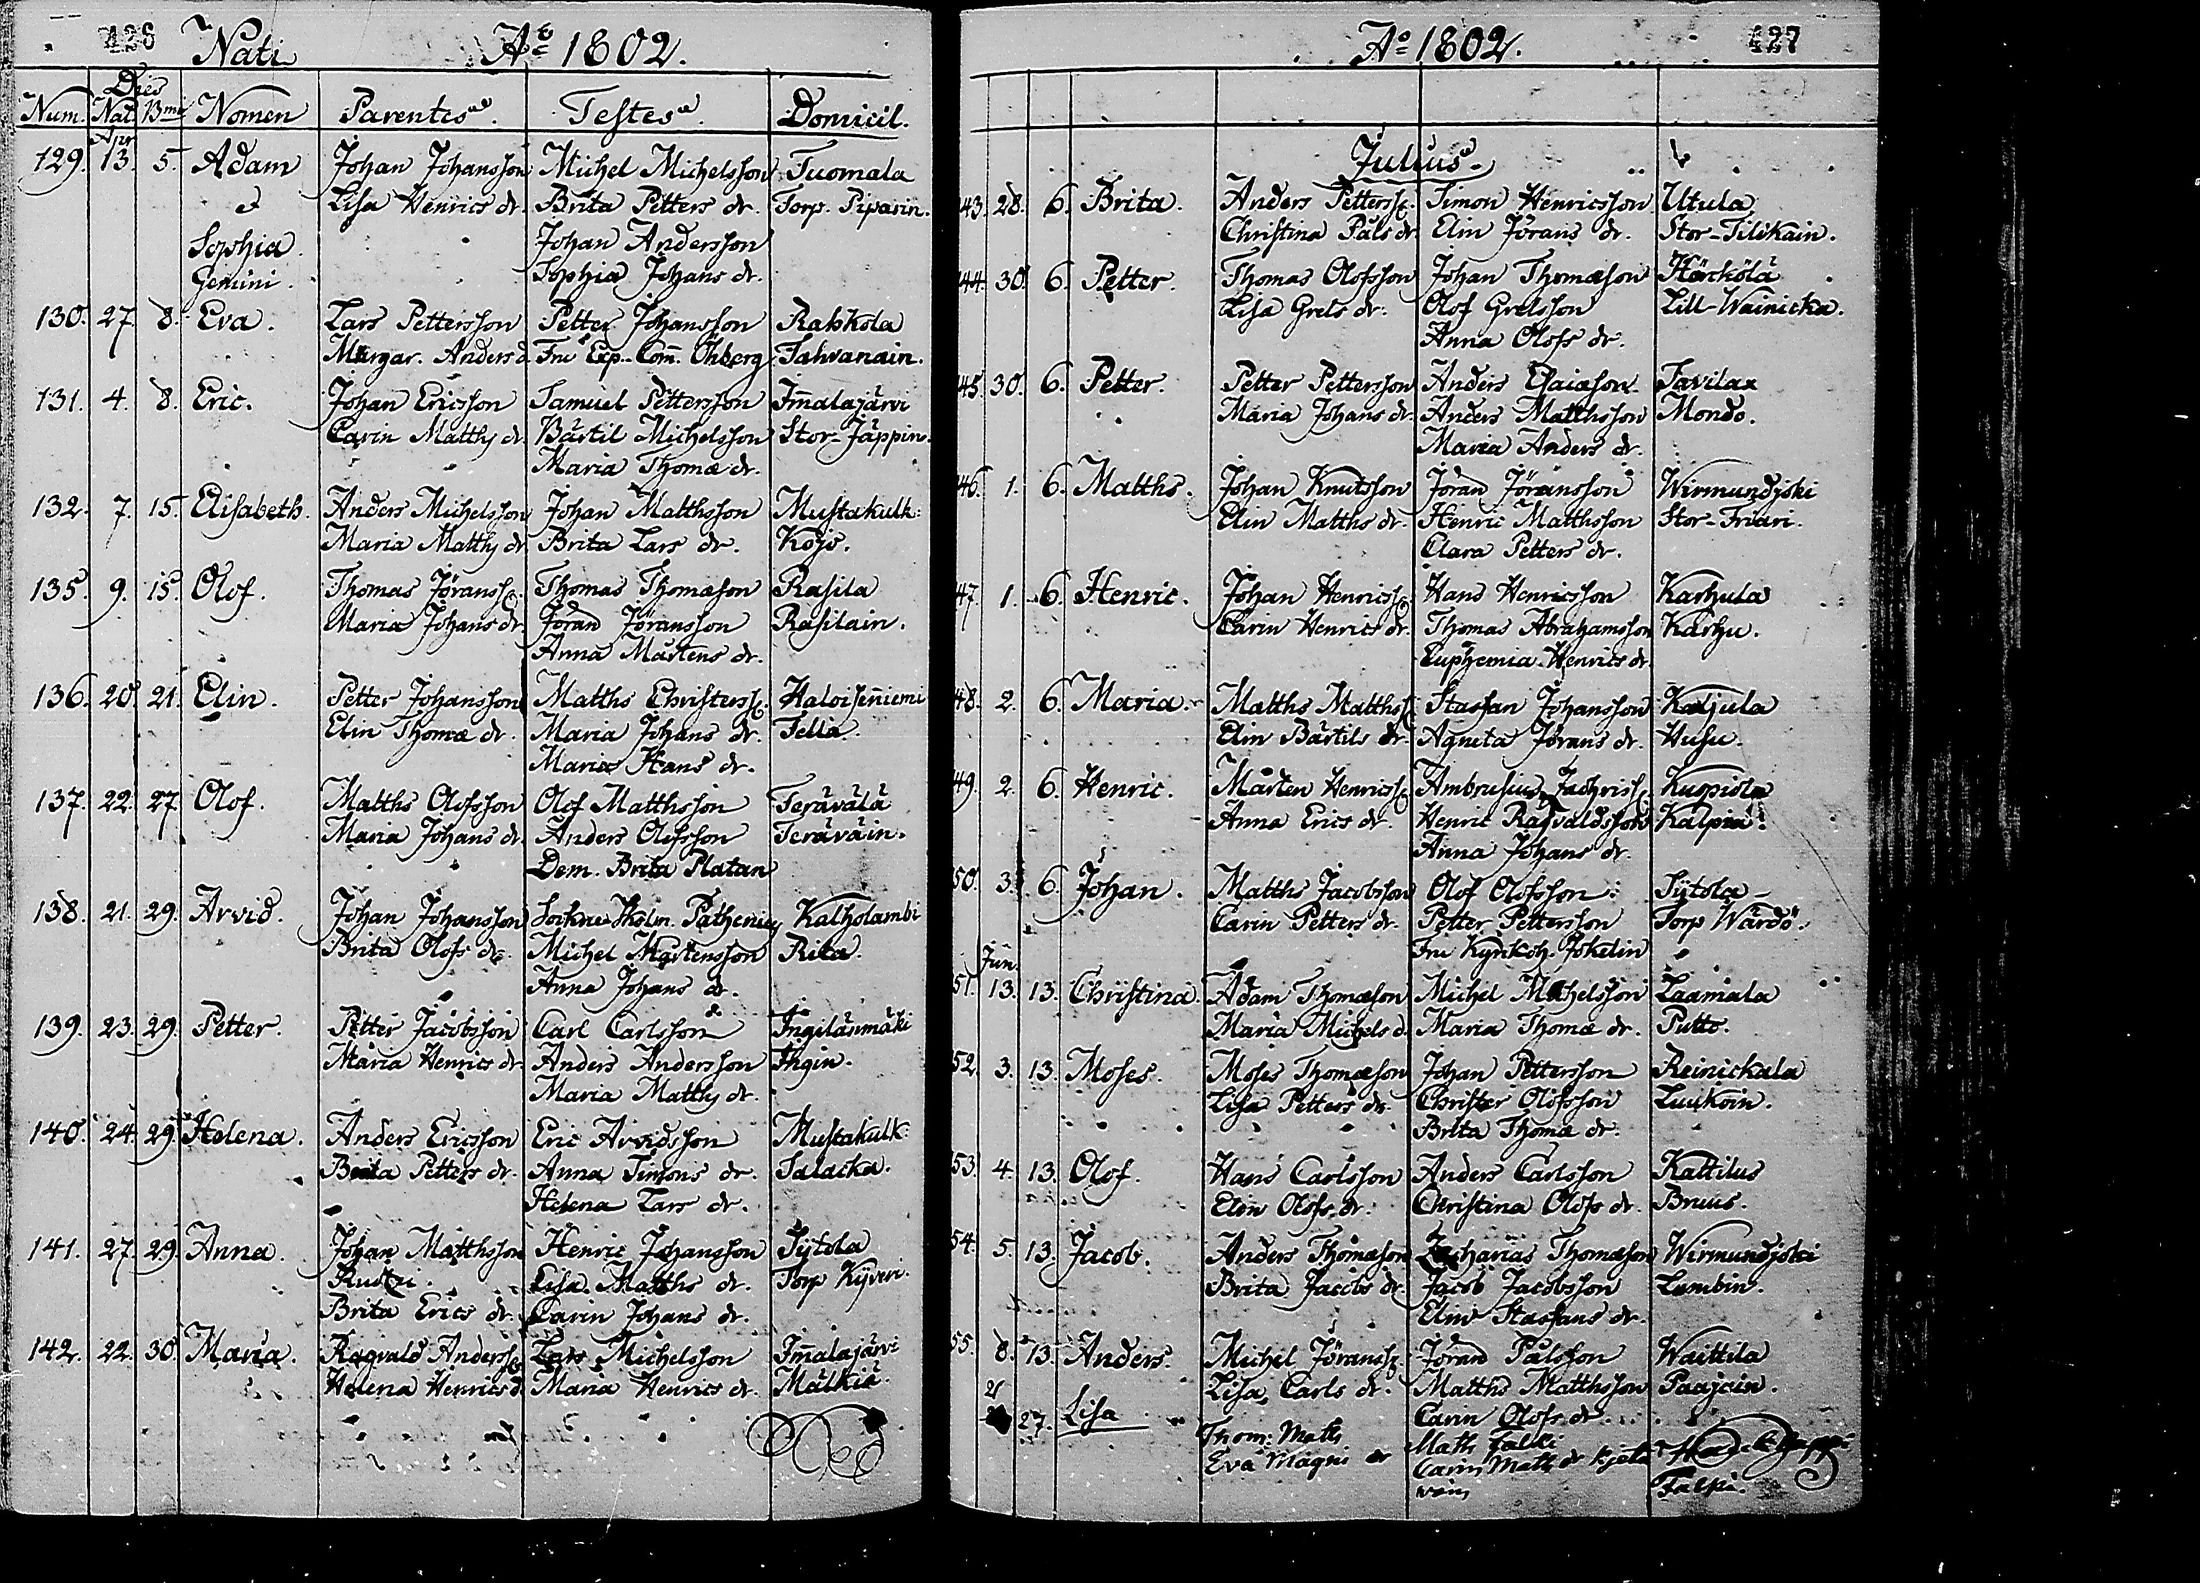 426 Nati Ao 1802.
Dies
Num. Nat. Bmi Nomen Parentes. Testes. Domicil.
Apr
129. 13. 5. Adam Johan Johansson Michel Michelsson Tuomala
& Lisa Henrics dr. Brita Petters dr. Torp. Piparin.
Sophia Johan Andersson
Gemini. Sophia Johans dr.
130. 27. 8. Eva. Lars Pettersson Petter Johansson Rahkola
Margar. Anders d. Fru Exp. Com. Öhberg Sahvanain.
131. 4. 8. Eric. Johan Ericsson Samuel Pettersson Immalajärvi
Carin Matths dr. Bärtil Michelsson Stor-Jäppin.
Maria Thomæ dr.
132. 7. 15. Elisabeth. Anders Michelsson Johan Matthsson Mustakulk:
Maria Matths dr. Brita Lars dr. Kojo.
135. 9. 15. Olof. Thomas Jöranss. Thomas Thomæson Rasila
Maria Johans dr. Jöran Jöransson Rasilain.
Anna Mårtens dr.
136. 20. 21. Elin. Petter Johansson Matths Christerss. Haloiseniemi
Elin Thomæ dr. Maria Johans dr. Tella.
Maria Hans dr.
137. 22. 27. Olof. Matths Olofsson Olof Matthsson Terävälä
Maria Johans dr. Anders Olofsson Teräväin.
Dem. Brita Platan
138. 21. 29. Arvid. Johan Johansson Sockne Skolm. Patheniey Kalholambi
Brita Olofs dr. Michel Mårtensson Rita.
Anna Johans dr.
139. 23. 29. Petter. Petter Jacobsson Carl Carlsson Ingilänmäki
Maria Henrics dr. Anders Andersson Ihgin.
Maria Matths dr.
140. 24. 29. Helena. Anders Ericsson Eric Arvidsson Mustakulk:
Brita Petters dr. Anna Simons dr. Salacka.
Helena Lars dr.
141. 27. 29. Anna. Johan Matthsson Henric Johansson Sytola
Lisa Matths dr. Torp Kyveri.
Brita Erics dr. Carin Johans dr.
142. 22. 30. Maria. Ragvald Anderss. Lars Michelsson Immalajärvi
Helena Henrics d. Maria Henrics dr. Mälkiä.
Ao 1802. 427
Julius.
43. 28. 6. Brita. Anders Petterss. Simon Henricsson Utula
Christina Påls dr. Elin Jörans dr. Stor-Tilikain.
44. 30. 6. Petter. Thomas Olofsson Johan Thomæson Härkölä
Lisa Grels dr. Olof Grelsson Lill-Wainicka.
Anna Olofs dr.
45. 30. 6. Petter. Petter Pettersson Anders Esaiæson Savilax
Maria Johans dr. Anders Matthsson Mondo.
Maria Anders dr.
46. 1. 6. Matths. Johan Knutsson Jöran Jöransson Wirmundjski
Elin Matths dr. Henric Matthsson Stor-Friari.
Clara Petters dr.
47. 1. 6. Henric. Johan Henricss. Hans Henricsson Karhula
Carin Henrics dr. Thomas Abrahamsson Karhu.
Euphemia Henrics dr.
48. 2. 6. Maria. Matths Matthss. Staffan Johansson Kaljula
Elin Bärtils dr. Agneta Jörans dr. Husu.
49. 2. 6. Henric. Mårten Henricss. Ambrusius Zachriss. Kuopiola
Anna Erics dr. Henric Ragvaldsson Kalpia.
Anna Johans dr.
50. 3. 6. Johan. Matths Jacobsson Olof Olofsson Sytola
Carin Petters dr. Petter Pettersson Torp Wärdö.
Fru Kyrkoh. Jokelin
Jun.
51. 13. 13. Christina. Adam Thomæson Michel Michelsson Laamala
Maria Michels d. Maria Thomæ dr. Putto.
52. 3. 13. Moses. Moses Thomæson Johan Pettersson Reinickala
Lisa Petters dr. Christer Olofsson Luukoin.
Brita Thomæ dr.
53. 4. 13. Olof. Hans Carlsson Anders Carlsson Kattilus
Elin Olofs dr. Christina Olofs dr. Bruus.
54. 5. 13. Jacob. Anders Thomæson Zacharias Thomæson Wirmundjski
Brita Jacobs dr. Jacob Jacobsson Lumbin.
Elin Staffans dr.
55. 8. 13. Anders. Michel Jöranss. Jöran Pålsson Waittila
Lisa Carls dr. Matths Matthsson Paajain.
Carin Olofs dr.
21 27. Lisa Thom: Math Math Falki
Eva Magni dr Carin Math dr
Falki.